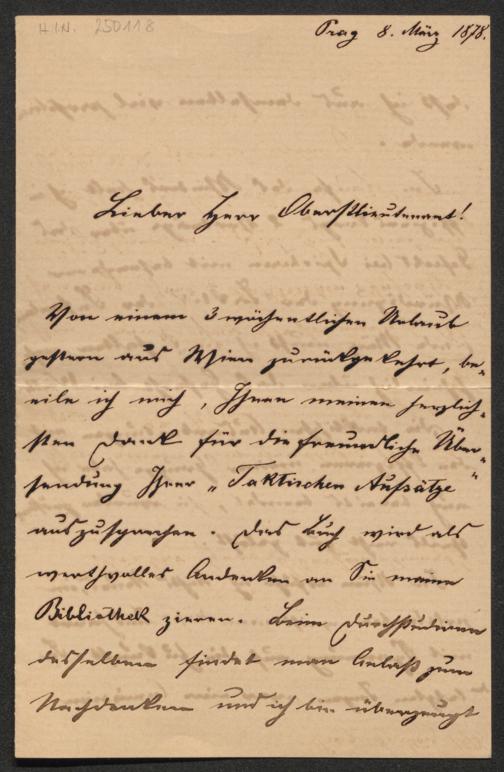 H.I.N. 250118
Prag 8. März 1878.
Lieber Herr Oberstlieutenant!
Von einem 3 wöchentlichen Urlaub
gestern aus Wien zurückgekehrt, be-
eile ich mich, Ihnen meinen herzlich-
sten Dank für die freundliche Über-
sendung Ihrer „Taktischen Aufsätze"
auszusprechen. Das Buch wird als
werthvolles Andenken an Sie meine
Bibliothek zieren. Beim Durchstudieren
desselben findet man Anlaß zum
Nachdenken und ich bin überzeugt